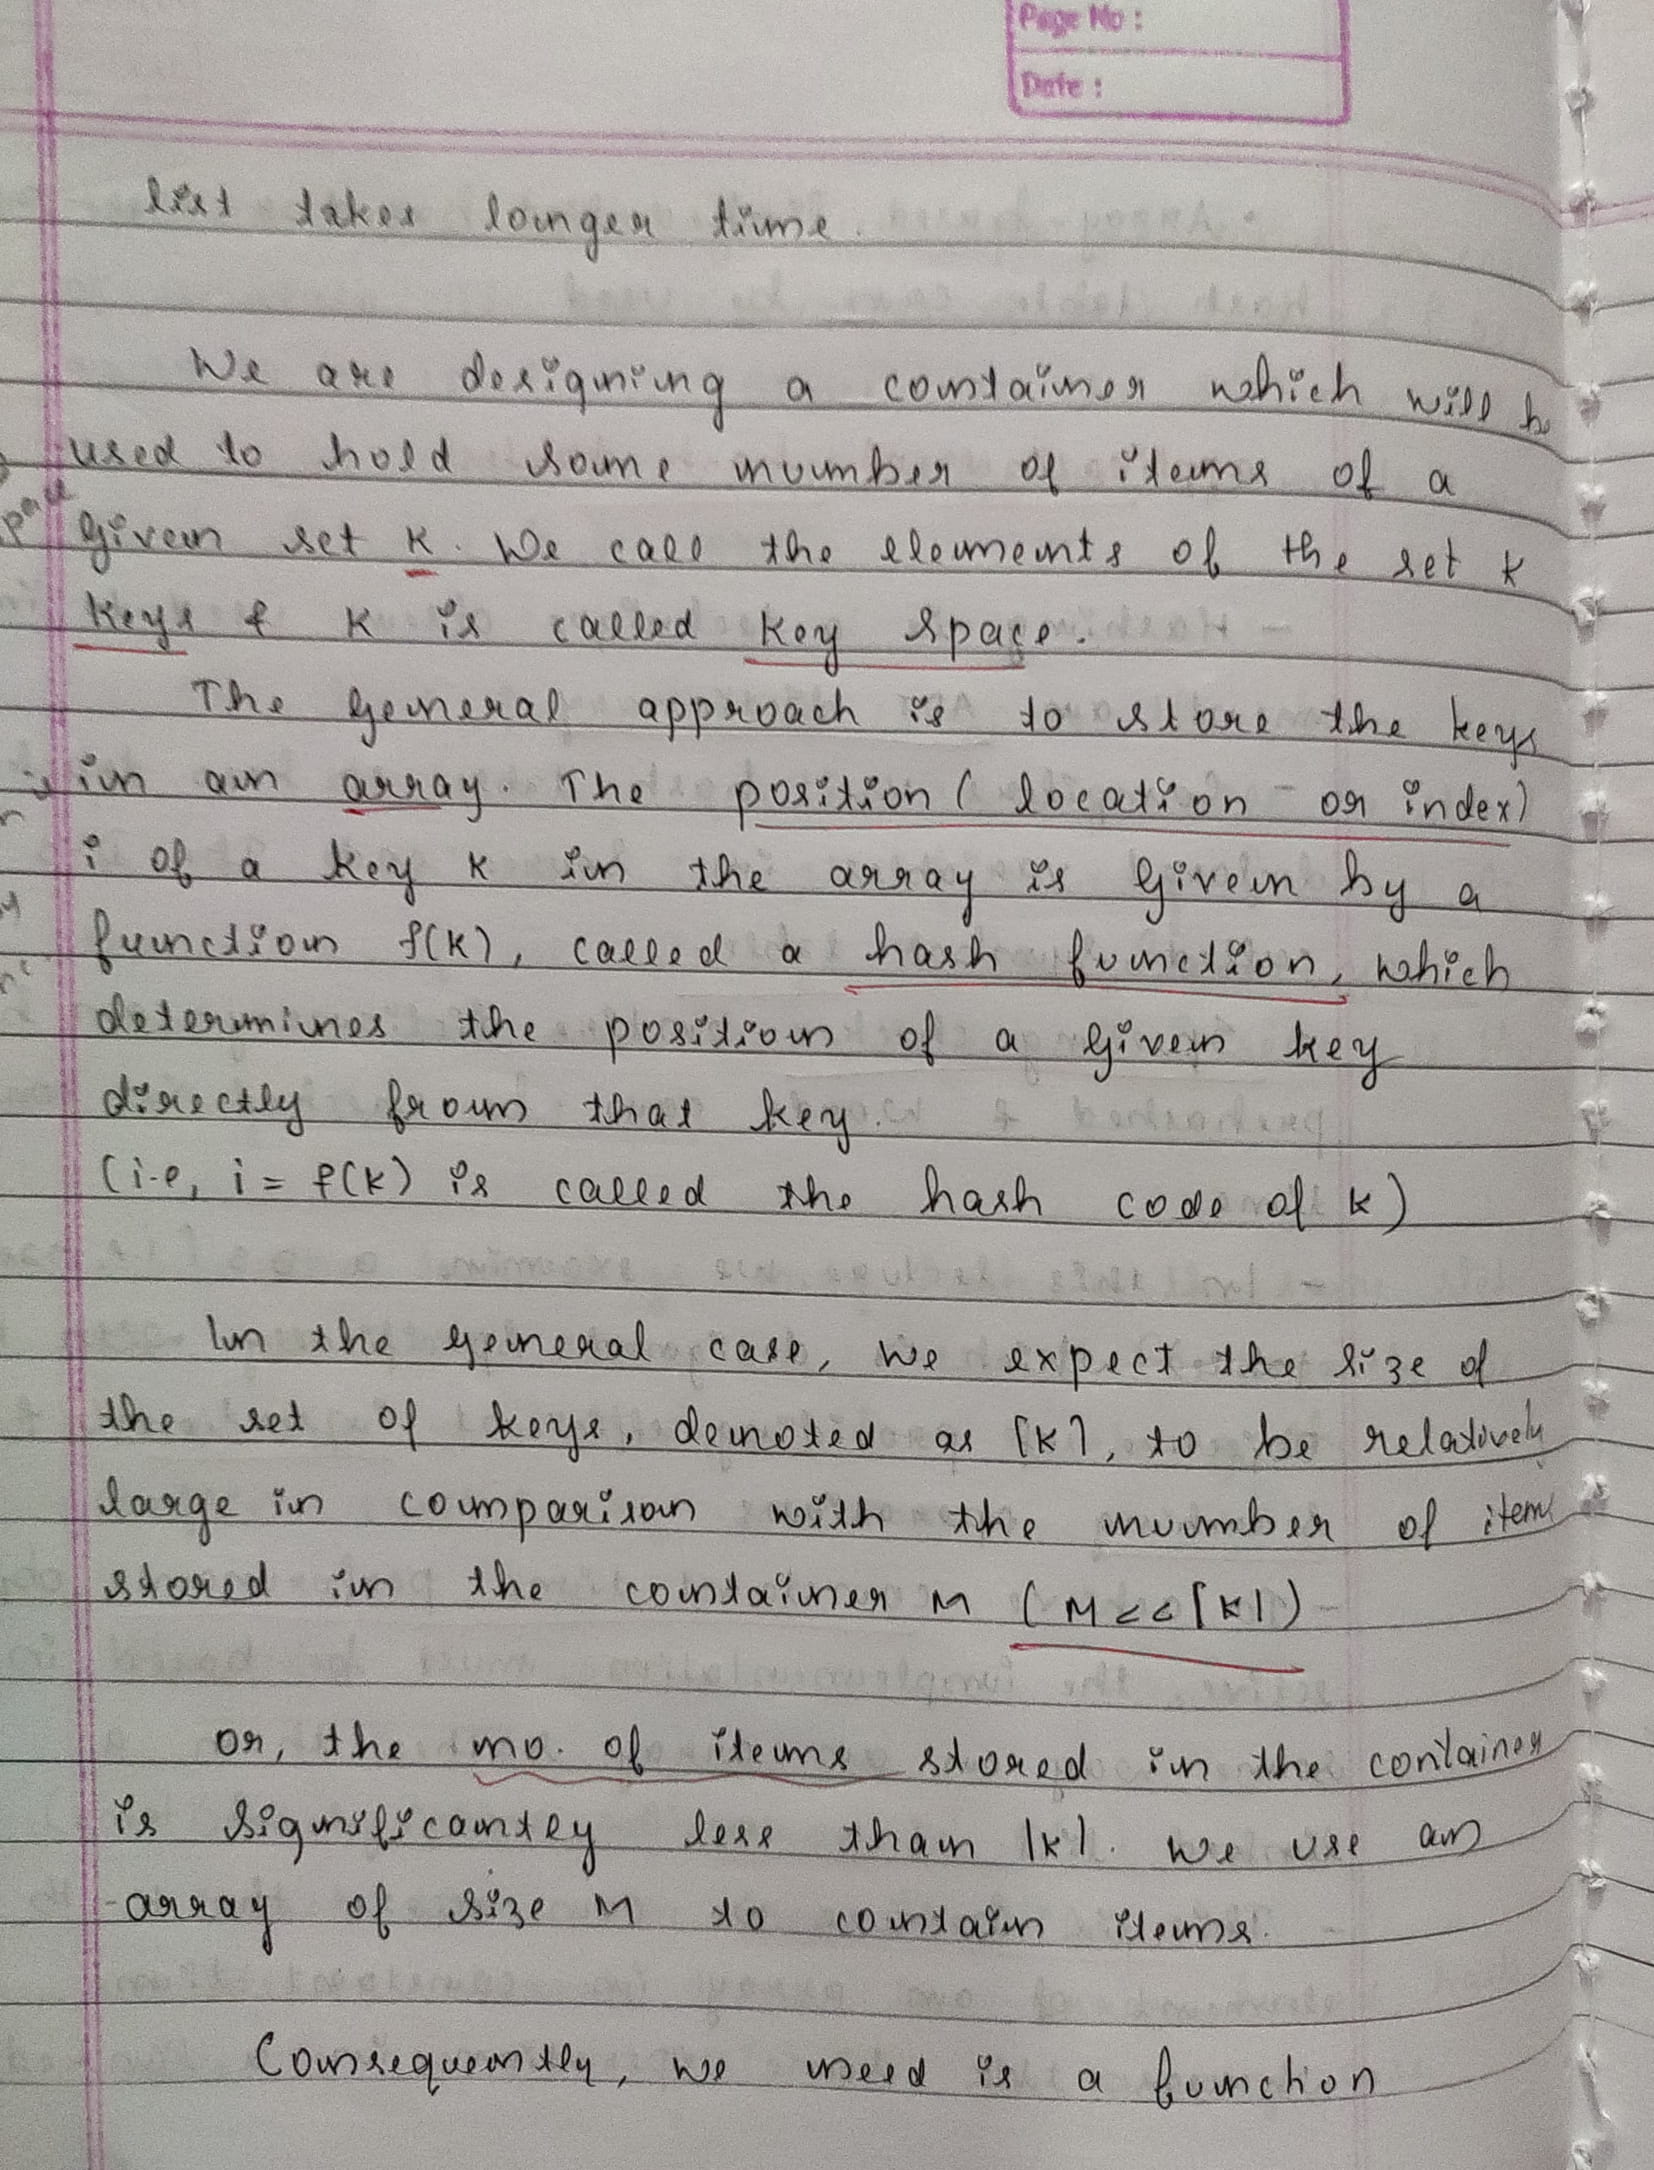 Page No :
Date :
list takes longer time.
We are designing a container which will be
used to hold some number of items of a
given set K. We call the elements of the set K
keys & K is called key space.
The general approach is to store the keys
in an array. The position ( location or index)
i of a key K in the array is given by a
function f(K), called a hash function, which
determines the position of a given key
directly from that key.
(i.e, i = f(K) is called the hash code of K)
In the general case, we expect the size of
the set of keys, denoted as [K], to be relatively
large in comparison with the number of item
stored in the container M (M<<|K|)
or, the no. of items stored in the container
is significantly less than |K|. We use an
array of size M to contain items.
Consequently, we need is a function